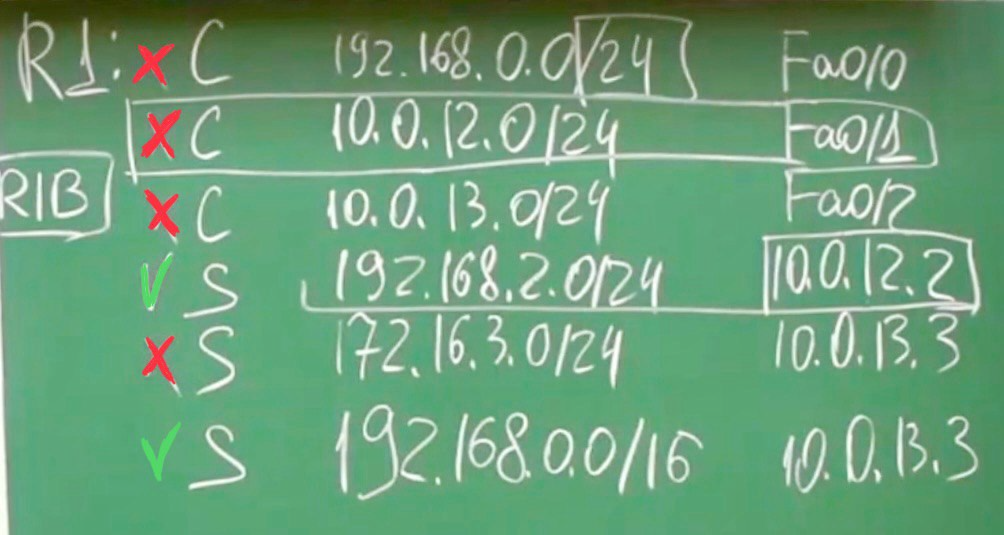 R1: C 192.168.0.0/24 Fa0/0
C 10.0.12.0/24 Fa0/1
RIB
C 10.0.13.0/24 Fa0/2
S 192.168.2.0/24 10.0.12.2
S 172.16.3.0/24 10.0.13.3
S 192.168.0.0/16 10.0.13.3